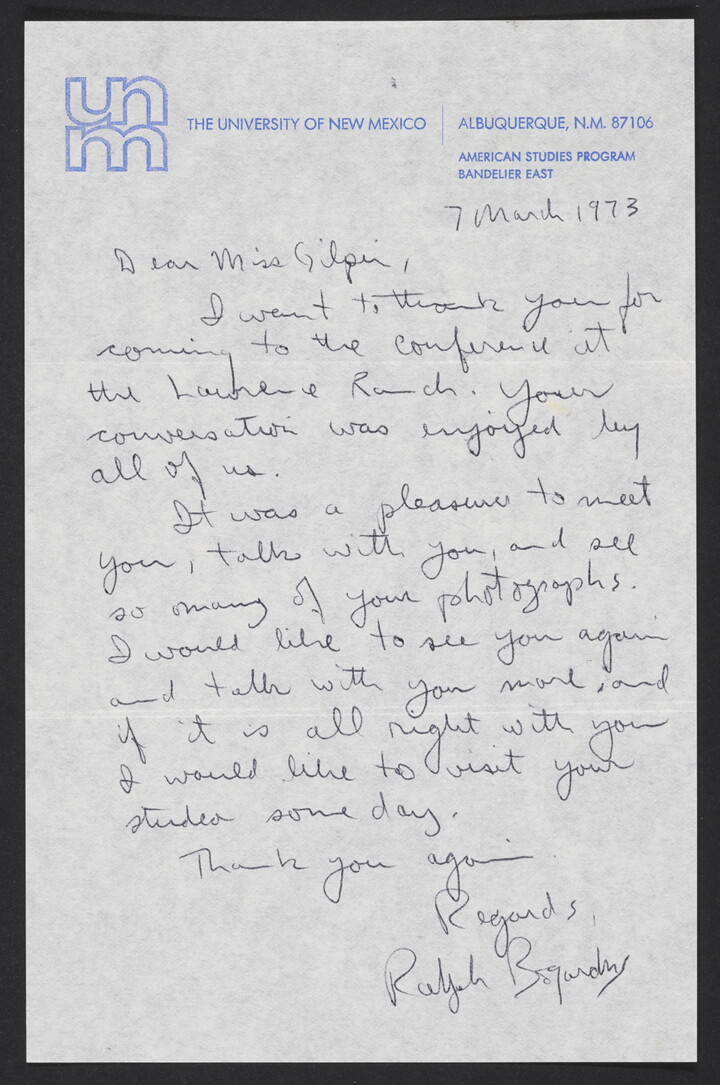 unm
THE UNIVERSITY OF NEW MEXICO
ALBUQUERQUE, N.M. 87106
AMERICAN STUDIES PROGRAM
BANDELIER EAST
7 March 1973
Dear Miss Gilpin,
I want to thank you for
coming to the conference at
the Lawrence Ranch. Your
conversation was enjoyed by
all of us.
It was a pleasure to meet
you, talk with you, and see
so many of your photographs.
I would like to see you again
and talk with you more, and
if it is all right with you
I would like to visit your
studio some day.
Thank you again
Regards,
Ralph Bogardus